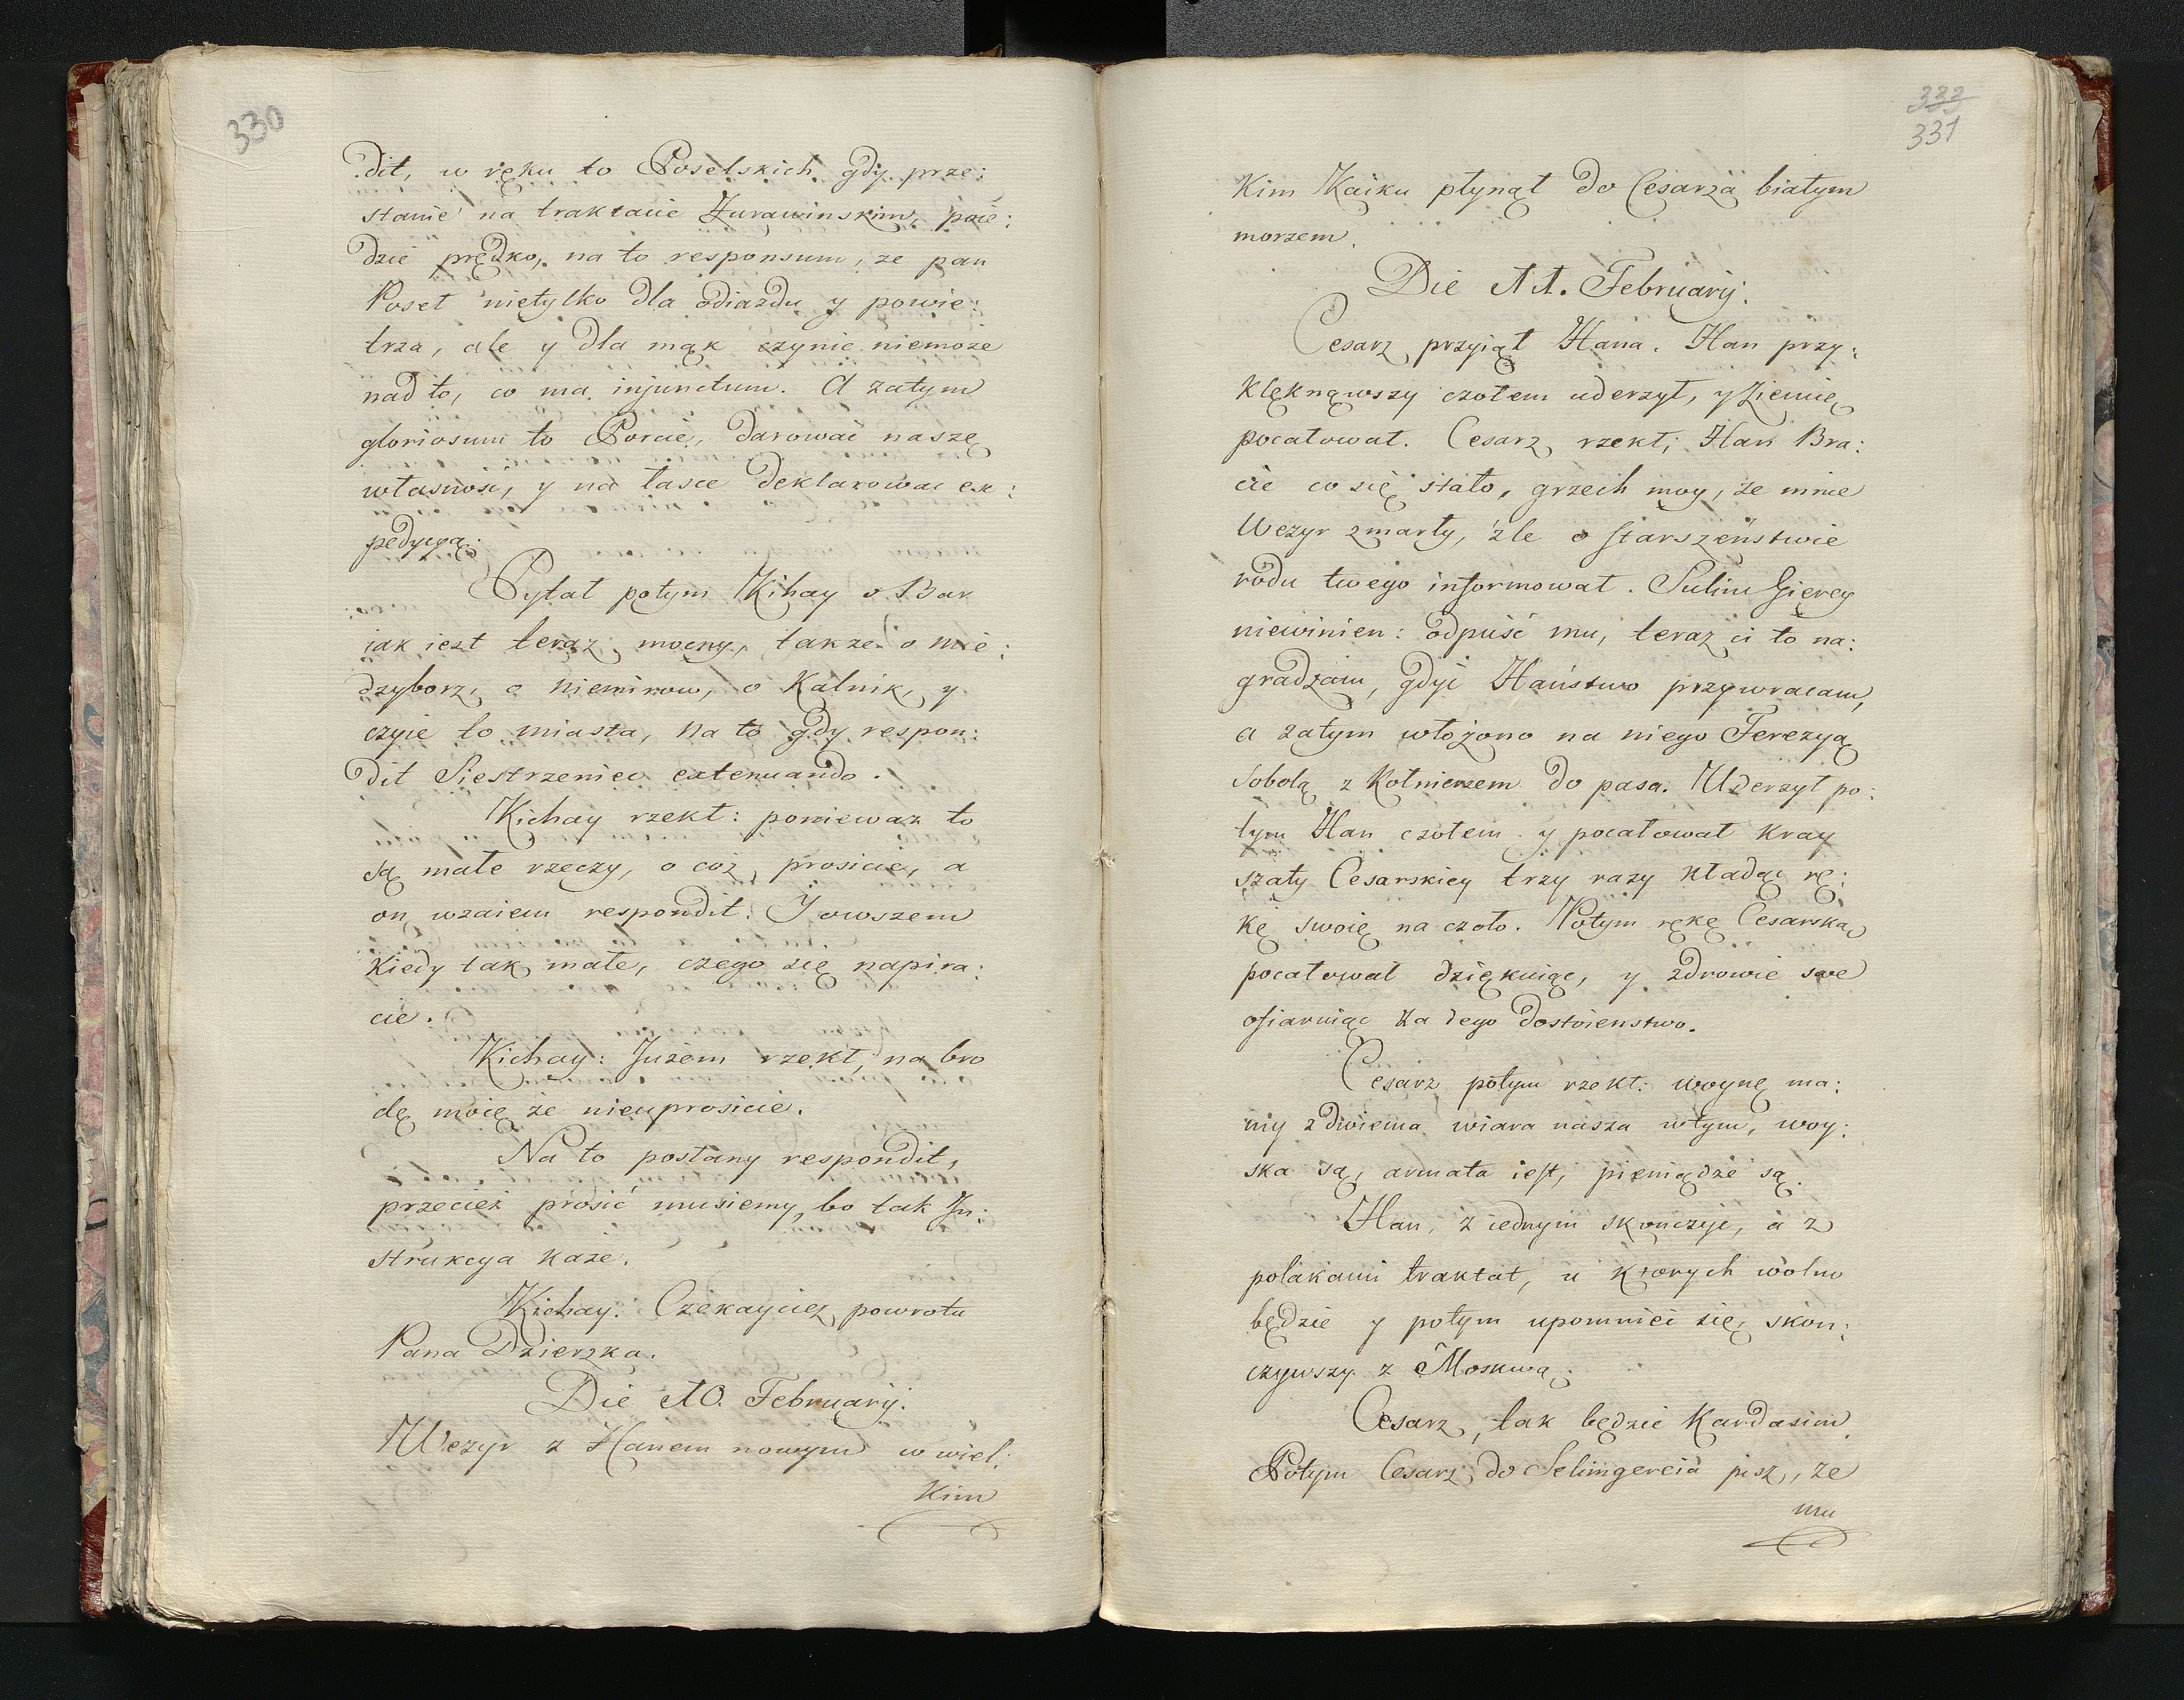 330
dit, w ręku to Poselskich gdy prze:
stanie na traktacie Żurawinskim, poie:
dzie prędko, na to responsum, ze pan
Poseł nietylko dla odiazdu y powie:
trza, ale y dla mąk czynic niemoże
nad to, co ma injunctum. A zatym
gloriosum to Porcie, darować naszę
własność, y na łasce deklarować ex:
pedycyą.
Pytał potym Kihay o Bar
iak iest teraz mocny, takze o mie:
dzyborz, o niemirow, o Kalnik, y
czyie to miasta, na to gdy respon:
dit Siestrzeniec extenuando.
Kichay rzekł: poniewaz to
są małe rzeczy, o coż prosicie, a
on wzaiem respondit. Y owszem
kiedy tak małe, czego się napira:
cie.
Kichay: Jużem rzekł, na bro
dę moię że nieuprosicie.
Na to posłany respondit,
przecież prosić musiemy, bo tak In:
strukcya każe.
Kichay: Czekaycież powrotu
Pana Dzierzka.
Die 10. February.
Wezyr z Hanem nowym w wiel:
kim
333
331
kim Kaiku płynął do Cesarza białym
morzem.
Die 11. February.
Cesarz przyiął Hana. Han przy:
klęknąwszy czołem uderzył, y Ziemię
pocałował. Cesarz rzekł; Han Bra:
cie co się stało, grzech moy, że mnie
Wezyr zmarły, źle o starszeństwie
rodu twego informował. Sulim Gierey
niewinien: odpuść mu, teraz ci to na:
gradzam, gdyć Haństwo przywracam,
a zatym włożono na niego Ferezyą
Sobolą z Kołnierzem do pasa. Uderzył po:
tym Han czołem y pocałował kray
szaty Cesarskiey trzy razy kładąc rę:
kę swoię na czoło. Potym rękę Cesarską
pocałował dziękuiąc, y zdrowie swe
ofiaruiąc za Jego dostoienstwo.
Cesarz potym rzekł: woynę ma:
my z dwiema wiara nasza wtym, woy:
ska są, armata iest, pieniądze są.
Han, z iednym skonczyć, a z
polakami traktat, u ktorych wolno
będzie y potym upomnieć się, skon:
czywszy z Moskwą.
Cesarz, tak będzie Kardasim.
Potym Cesarz do Selimgereia pisz, że
mu